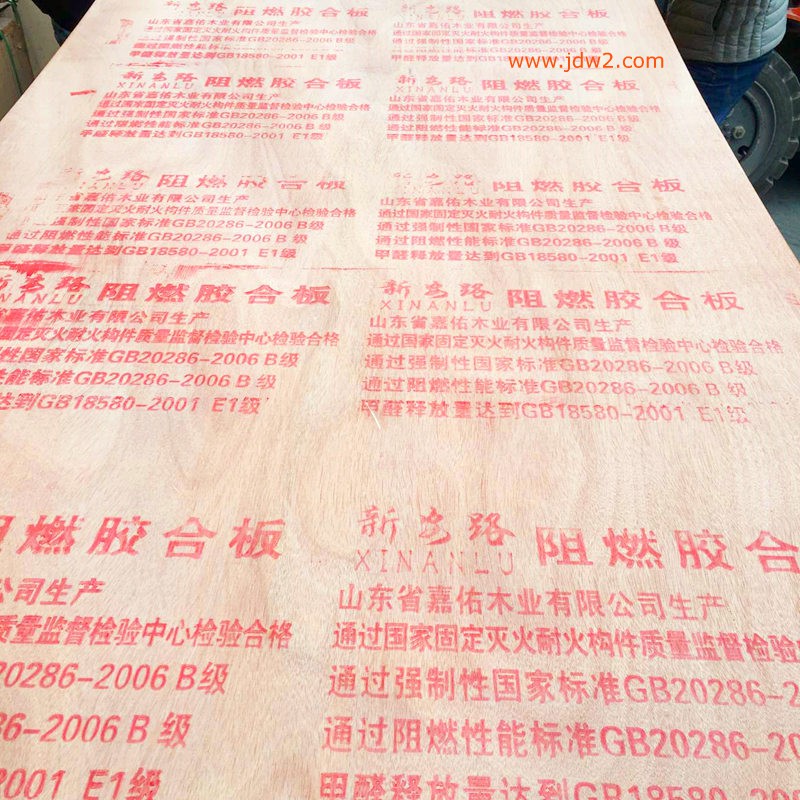 www.jdw2.com
新安路 阻燃胶合板
山东省嘉佑木业有限公司生产
通过国家固定灭火耐火构件质量监督检验中心检验合格
强制性国家标准GB20286-2006 B级
通过阻燃性能标
甲醛释放量达到GB18580-2001 E1级
阻燃胶合板
山东省嘉佑木业有限公司生产
国家固定灭火耐火构件质量
强制性国家标准GB20286-2006 B级
标准GB20286-2006 B级
甲醛释放量达到GB18580-2001 E1级
新安路 阻燃胶合板
XINANLU
山东省嘉佑木业有限公司生产
通过国家固定灭火耐火构件质量监督检验中心检验合格
通过强制性国家标准GB20286-2006 B级
通过阻燃性能标准GB20286-2006 B 级
甲醛释放量达到GB18580-2001 E1级
新安路 阻燃胶合板
XINANLU
山东省嘉佑木业有限公司生产
通过国家固定灭火耐火构件质量监督检验中心检验合格
通过强制性国家标准GB20286-2006 B级
通过阻燃性能标准GB20286-2006 B 级
甲醛释放量达到GB18580-2001 E1级
阻燃胶合板
山东省嘉佑木业有限公司生产
国家固定灭火耐火构件质量监督检验中心检验合格
强制性国家标准GB20286-2006 B级
通过阻燃性能标准GB20286-2006 B 级
甲醛释放量达到GB18580-2001 E1级
阻燃胶合板
山东省嘉佑木业有限公司生产
通过国家固定灭火耐火构件质量监督检验中心检验合格
通过强制性国家标准GB20286-2006 B级
通过阻燃性能标准GB20286-2006 B 级
甲醛释放量达到GB18580-2001 E1级
新安路 阻燃胶合板
XINANLU
东省嘉佑木业有限公司生产
固定灭火耐火构件质量监督检验中心检验合格
性国家标准GB20286-2006 B级
性能标准GB20286-2006 B 级
达到GB18580-2001 E1级
新安路 阻燃胶合板
XINANLU
山东省嘉佑木业有限公司生产
通过国家固定灭火耐火构件质量监督检验中心检验合格
通过强制性国家标准GB20286-2006 B级
通过阻燃性能标准GB20286-2006 B 级
甲醛释放量达到GB18580-2001 E1级
阻燃胶合板
公司生产
质量监督检验中心检验合格
20286-2006 B级
86-2006 B 级
2001 E1级
新安路 阻燃胶合
XINANLU
山东省嘉佑木业有限公司生产
通过国家固定灭火耐火构件质量监督检验
通过强制性国家标准GB20286-2
通过阻燃性能标准GB20286-20
甲醛释放量达到GB18580-200